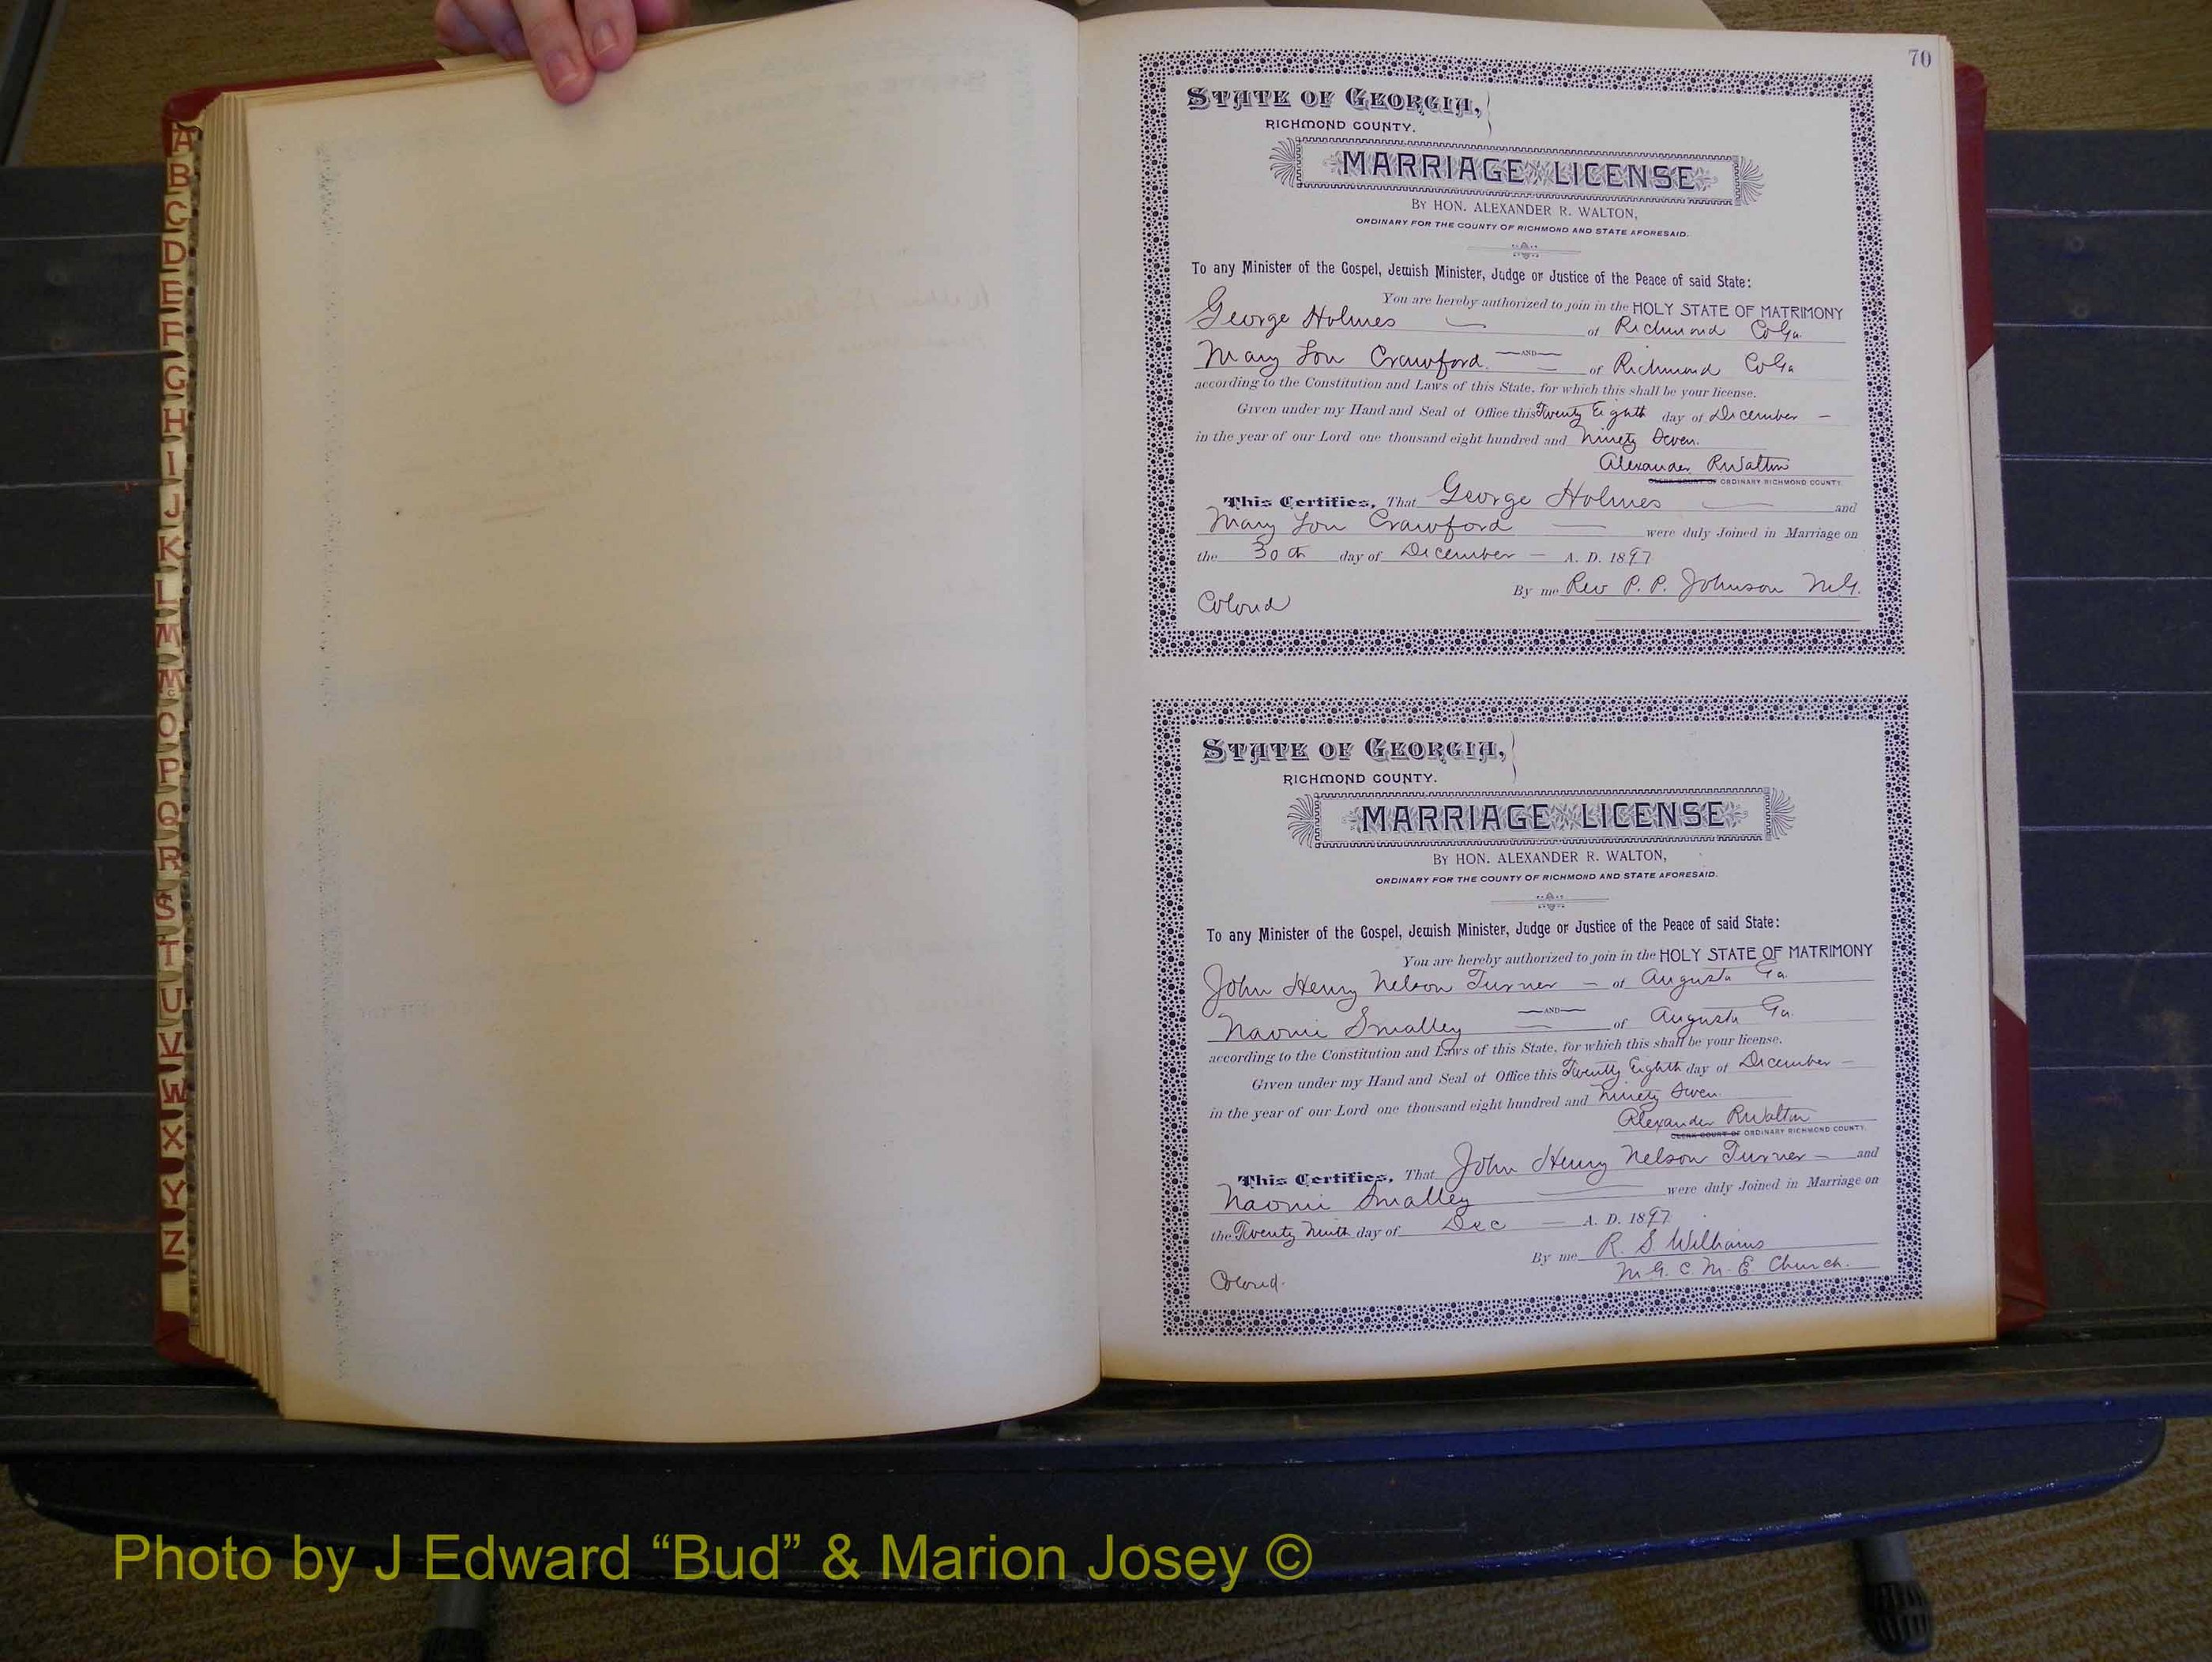 A
B
C
D
E
F
G
H
I
J
K
L
M
Mc
O
P
Q
R
S
T
U
V
W
X
Y
Z
70
STATE OF GEORGIA,
RICHMOND COUNTY.
MARRIAGE LICENSE
BY HON. ALEXANDER R. WALTON,
ORDINARY FOR THE COUNTY OF RICHMOND AND STATE AFORESAID.
To any Minister of the Gospel, Jewish Minister, Judge or Justice of the Peace of said State:
You are hereby authorized to join in the HOLY STATE OF MATRIMONY
George Holmes of Richmond Co Ga.
AND
Mary Lou Crawford of Richmond Co Ga
according to the Constitution and Laws of this State, for which this shall be your license.
Given under my Hand and Seal of Office this Twenty Eighth day of December
in the year of our Lord one thousand eight hundred and Ninety Seven.
Alexander R Walton
CLERK COURT OF ORDINARY RICHMOND COUNTY.
This Certifies, That George Holmes and
Mary Lou Crawford were duly Joined in Marriage on
the 30th day of December A. D. 1897
By me Rev P. P. Johnson M.G.
Colored
STATE OF GEORGIA,
RICHMOND COUNTY.
MARRIAGE LICENSE
BY HON. ALEXANDER R. WALTON,
ORDINARY FOR THE COUNTY OF RICHMOND AND STATE AFORESAID.
To any Minister of the Gospel, Jewish Minister, Judge or Justice of the Peace of said State:
You are hereby authorized to join in the HOLY STATE OF MATRIMONY
John Henry Nelson Turner of Augusta Ga.
AND
Naomi Smalley of Augusta Ga.
according to the Constitution and Laws of this State, for which this shall be your license.
Given under my Hand and Seal of Office this Twenty Eighth day of December
in the year of our Lord one thousand eight hundred and Ninety Seven.
Alexander R Walton
CLERK COURT OF ORDINARY RICHMOND COUNTY.
This Certifies, That John Henry Nelson Turner and
Naomi Smalley were duly Joined in Marriage on
the Twenty Ninth day of Dec A. D. 1897
By me R. S. Williams
M. G. C. M. E. Church.
Colored.
Photo by J Edward “Bud” & Marion Josey ©